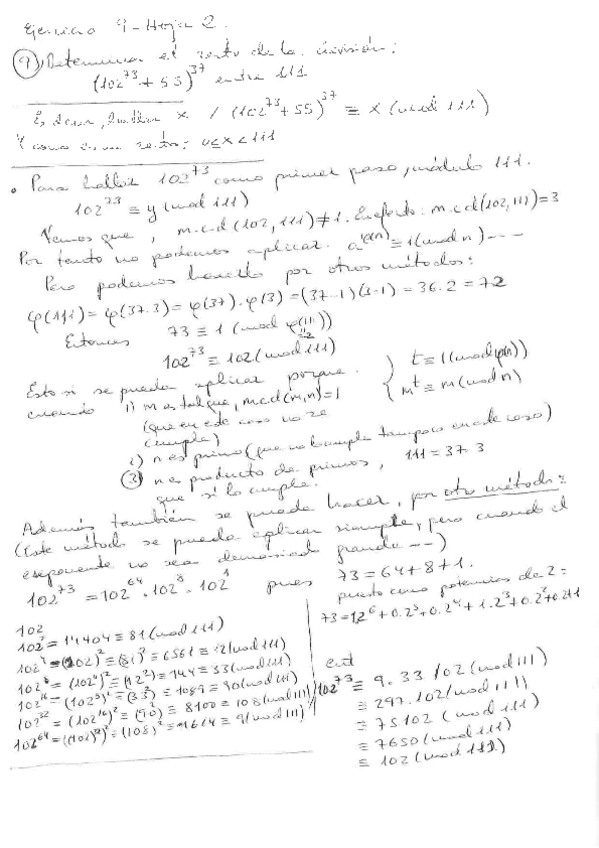 Ejercicio 9 - Hoja 2.
(9) Determinar el resto de la división:
(102^73 + 55)^37 entre 111
Es decir, hallar x / (102^73 + 55)^37 ≡ x (mod 111)
Y como es un resto: 0≤x<111
• Para hallar 102^73 como primer paso, módulo 111.
102^73 ≡ y (mod 111)
Vemos que, m.c.d(102, 111) ≠ 1. En efecto: m.c.d(102, 111) = 3
Por tanto no podemos aplicar. a^φ(n) ≡ 1 (mod n) ---
Pero podemos hacerlo por otros métodos:
φ(111) = φ(37·3) = φ(37)·φ(3) = (37-1)(3-1) = 36·2 = 72
Entonces 73 ≡ 1 (mod φ(111))
72
102^73 ≡ 102 (mod 111)
Esto si se puede aplicar porque.
cuando 1) m es tal que, mcd(m,n)=1
(que en este caso no se
cumple)
t ≡ 1 (mod φ(n))
m^t ≡ m (mod n)
2) n es primo (que no lo cumple tampoco en este caso)
(3) n es producto de primos, 111 = 37·3
que sí lo cumple.
Además también se puede hacer, por otro método:
(Este método se puede aplicar siempre, pero cuando el
exponente no sea demasiad grande --)
102^73 = 102^64 · 102^8 · 102^1 pues
73 = 64+8+1.
puesto como potencias de 2:
73 = 1·2^6 + 0·2^5 + 0·2^4 + 1·2^3 + 0·2^2 + 0·2+1
102
102^2 = 10404 ≡ 81 (mod 111)
102^4 = (102)^2 ≡ (81)^2 = 6561 ≡ 12 (mod 111)
102^8 = (102^4)^2 ≡ (12^2) = 144 ≡ 33 (mod 111)
102^16 = (102^8)^2 ≡ (33^2) = 1089 ≡ 90 (mod 111)
102^32 = (102^16)^2 ≡ (90^2) = 8100 ≡ 108 (mod 111)
102^64 = ((102)^32)^2 ≡ (108)^2 = 11664 ≡ 9 (mod 111)
102^73 ≡ 9·33·102 (mod 111)
≡ 297·102 (mod 111)
≡ 75·102 (mod 111)
≡ 7650 (mod 111)
≡ 102 (mod 111)